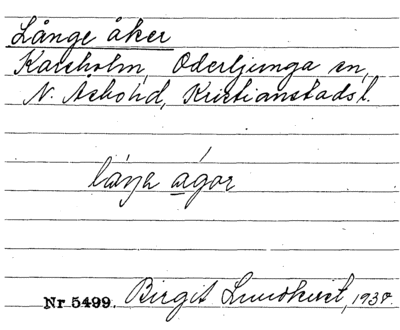 Långe åker
Karsholm, Oderljunga sn,
N. Åsbo hd, Kristianstads l.
lånja ágor
Nr 5499. Birgit Lundkvist, 1938.